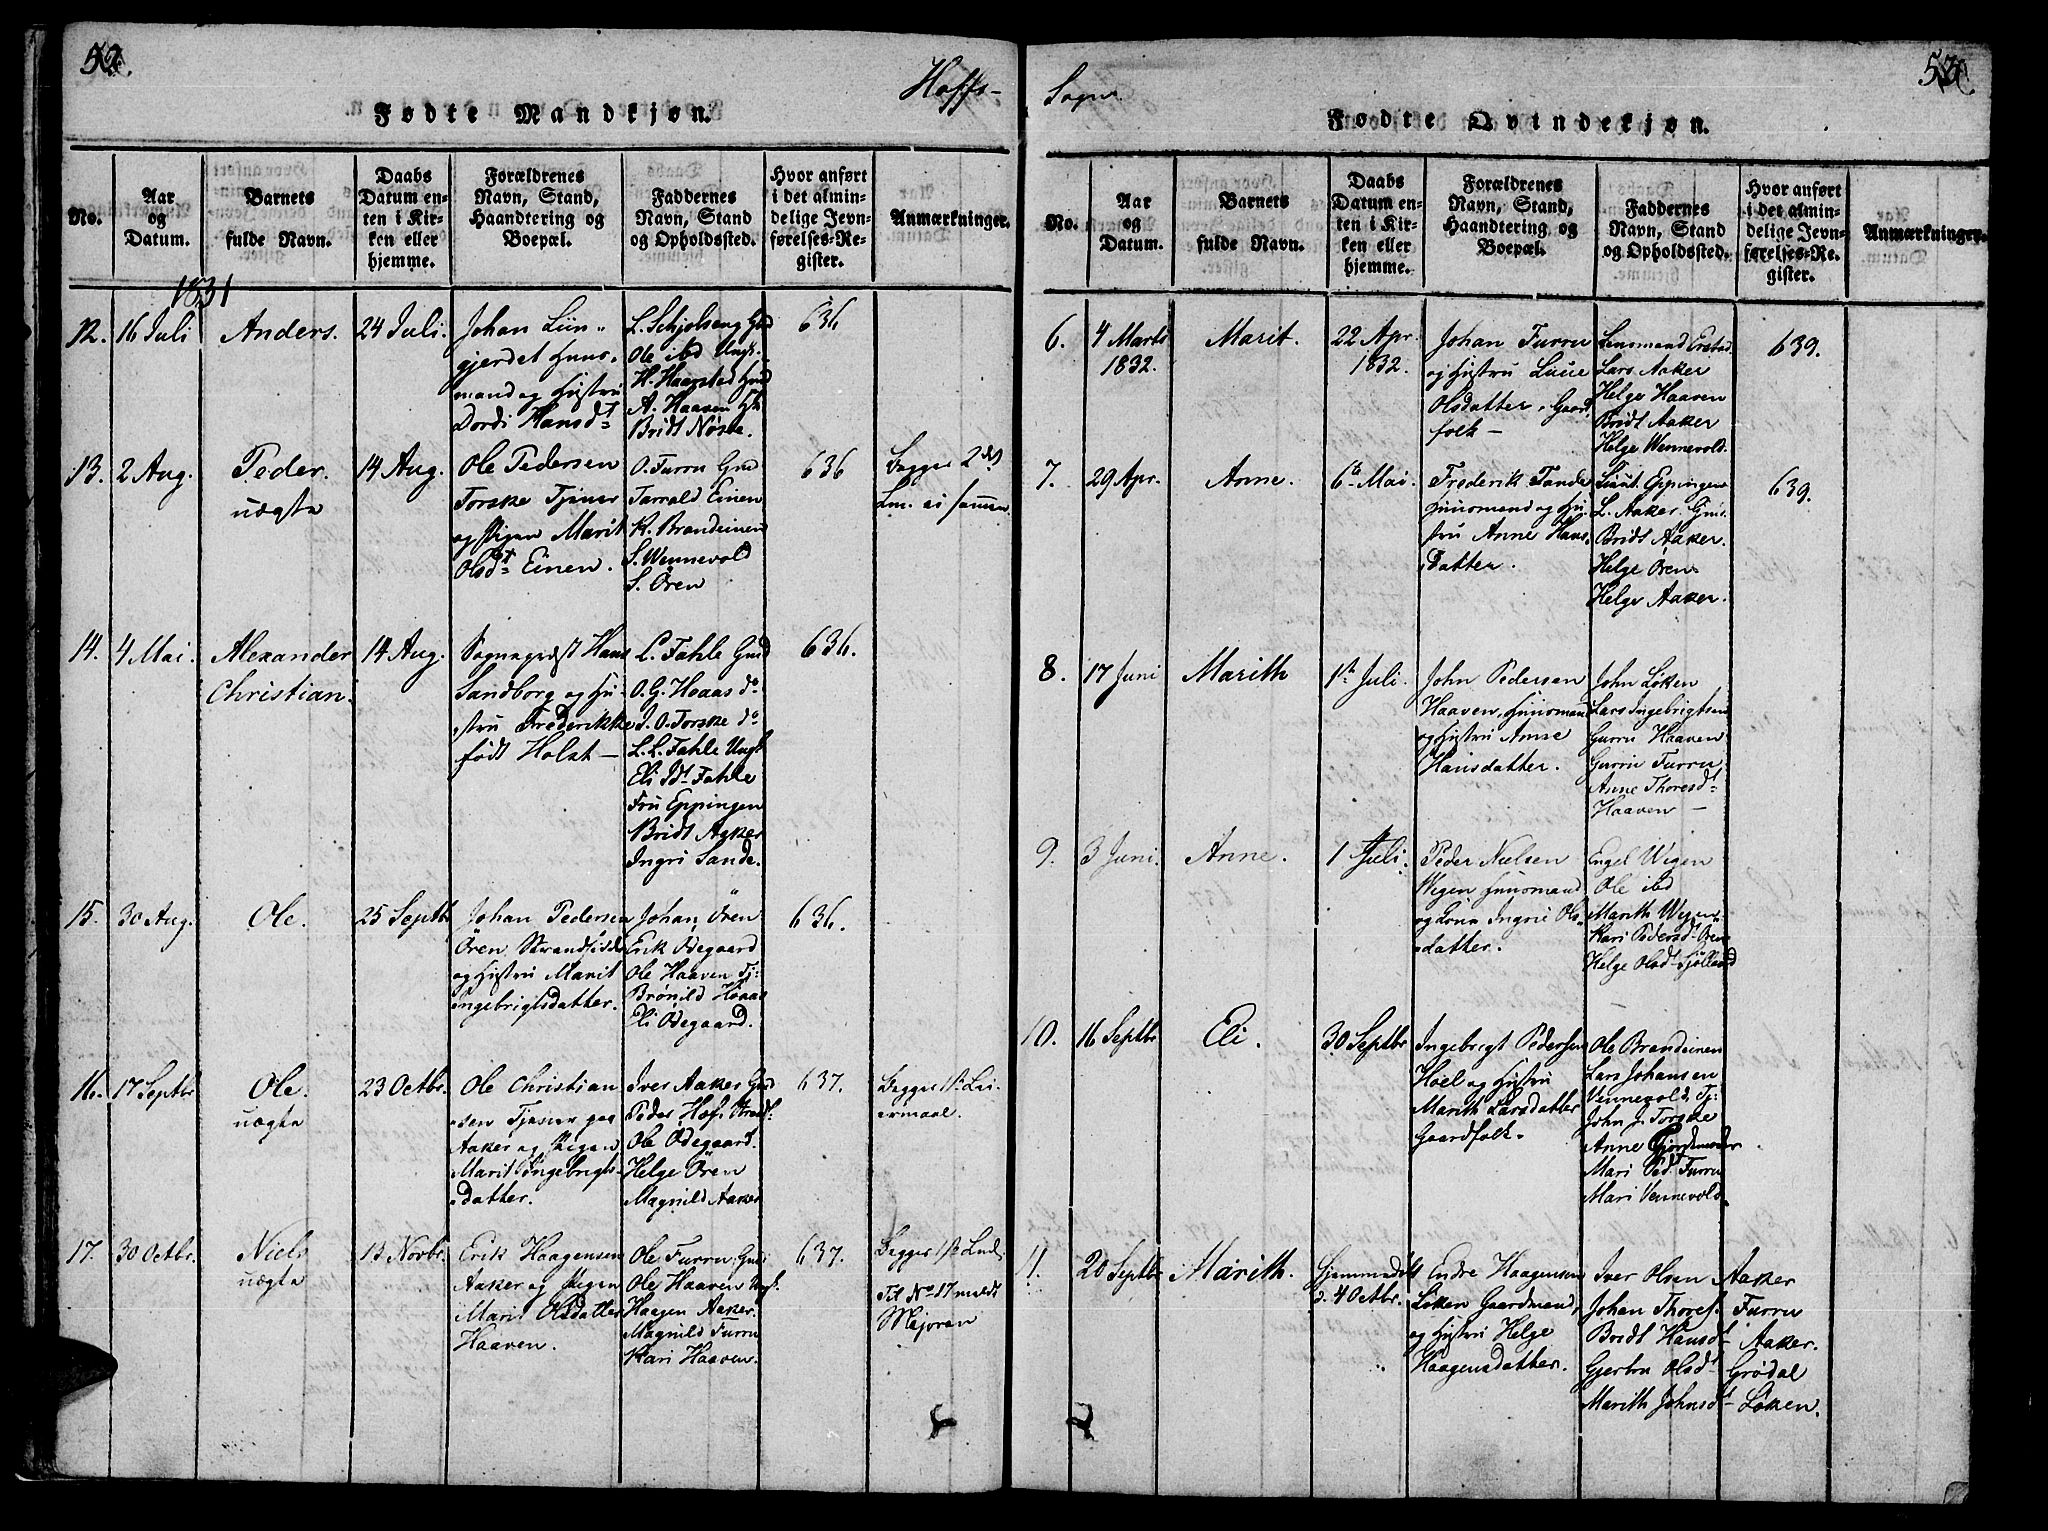 52.
Hoffs-
Fødte Mandkjøn.
No.
Aar
og
Datum.
Barnets
fulde Navn.
Daabs
Datum en-
ten i Kir-
ken eller
hjemme.
Forældrenes
Navn, Stand,
Haandtering og
Boepæl.
Faddernes
Navn, Stand
og Opholdssted.
Hvor anført
i det almin-
delige Jevn-
førelses-Re-
gister.
Anmærkninger.
1831
12.
16 Juli
Anders.
24 Juli.
Johan Liin-
gjerdet Huus-
mand og Hustru
Dordi Hansdt
L. Schjolseng Gmd
Ole ibd Ungk.
H. Haarstad Gmd
A. Haaven
Bridt Nøste.
636
13.
2 Aug.
Peder.
uægte
14 Aug.
Ole Pedersen
Torske Tjener
og Pigen Marit
Olsdt Einen.
O. Furru Gmd
Tarrald Einen
K. Brandeinen
S. Wennevold
S. Ören
636
Begges 2det
Lm. ei sammen
14.
4 Mai.
Alexander
Christian.
14 Aug.
Sognepræst Hans
Sandborg og Hu-
stru Frederikke
født Holst —
L. Fahle Gmd
O. G. Hoaas do
J. O. Torske do
L. L. Fahle Ungk
Eli Fahle
Fru Eppingen
Bridt Aaker
Ingri Sande.
636.
15.
30 Aug.
Ole.
25 Septbr
Johan Pedersen
Ören Strandsidder
og Hustru Marit
Ingebrigtsdatter.
Johan Ören
Erik Ödegaard
Ole Haaven Tj:
Brønild Hoaas
Eli Ödegaard.
636.
16.
17 Septbr
Ole.
uægte
23 Octbr.
Ole Christian
sen Tjener paa
Aaker og Pigen
Marit Ingebrigts-
datter.
Iver Aaker Gmd
Peder Hof.
Ole Ödegaard.
Helge Ören
Magnild Aaker
637.
Begges 1ste Lei
ermaal.
17.
30 Octbr.
Niels
uægte
13 Novbr.
Erik Haagensen
Aaker og Pigen
Marit Olsdatter
Haaven.
Ole Furru Gmd
Ole Haaven Ungk.
Haagen Aaker.
Magnild Furru
Kari Haaven.
637.
Begges 1ste
Til No 17 meldt
Majoren
53.
Sogn
Fødte Qvindekjøn.
No.
Aar
og
Datum.
Barnets
fulde Navn.
Daabs
Datum en-
ten i Kir-
ken eller
hjemme.
Forældrenes
Navn, Stand,
Haandtering og
Boepæl.
Faddernes
Navn, Stand
og Opholdssted.
Hvor anført
i det almin-
delige Jevn-
førelses-Re-
gister.
Anmærkninger.
6.
4 Marts
1832.
Marit.
22 Apr.
1832.
Johan Furru
og Hustru
Olsdatter, Gaard
folk —
Lensmand Erstad.
Lars Aaker
Helge Haaven
Bridt Aaker
Helge Wennevold.
639.
7.
29 Apr.
Anne.
6te Mai.
Frederik Tande
Huusmand og Hu-
stru Anne Hans-
datter.
Lieut. Eppingen
L. Aaker. Gmd.
Bridt Aaker.
Helge Ören
Helge Aaker.
639.
8.
17 Juni
Marith
1ste Juli.
John Pedersen
Haaven, Huusmand
og Hustru Anne
Hansdatter.
John Løken
Lars Ingebrigtsen
Gurru Haaven
Gurru Furru
Anne Thoresdt
Haaven —
9.
3 Juni.
Anne.
1 Juli.
Peder Nielsen
Wigen Huusmand
og Kone Ingri Ols-
datter.
Engel Wigen
Ole ibd
Marith Wigen
Kari Pedersdt Ören
Helge Olsdt Sjölland
10.
16 Septbr
Eli.
30 Septbr
Ingebrigt Pedersen
Hoel og Hustru
Marith Larsdatter
Gaardfolk.
Ole Brandeinen
Lars Johansen
Vennevold. Tj:
John J. Torske
Anne
Mari Ped. Furru
Mari Vennevold.
11.
20 Septbr
Marith.
Hjemmedøbt
d. 4 Octbr.
Endre Haagensen
Løken Gaardmand,
og Hustru Helge
Haagensdatter.
Iver Olsen Aaker
Johan Thores. Furru
Bridt Hansdt Aaker.
Gjertru Olsdt Grödal
Marith Johnsdt Løken.